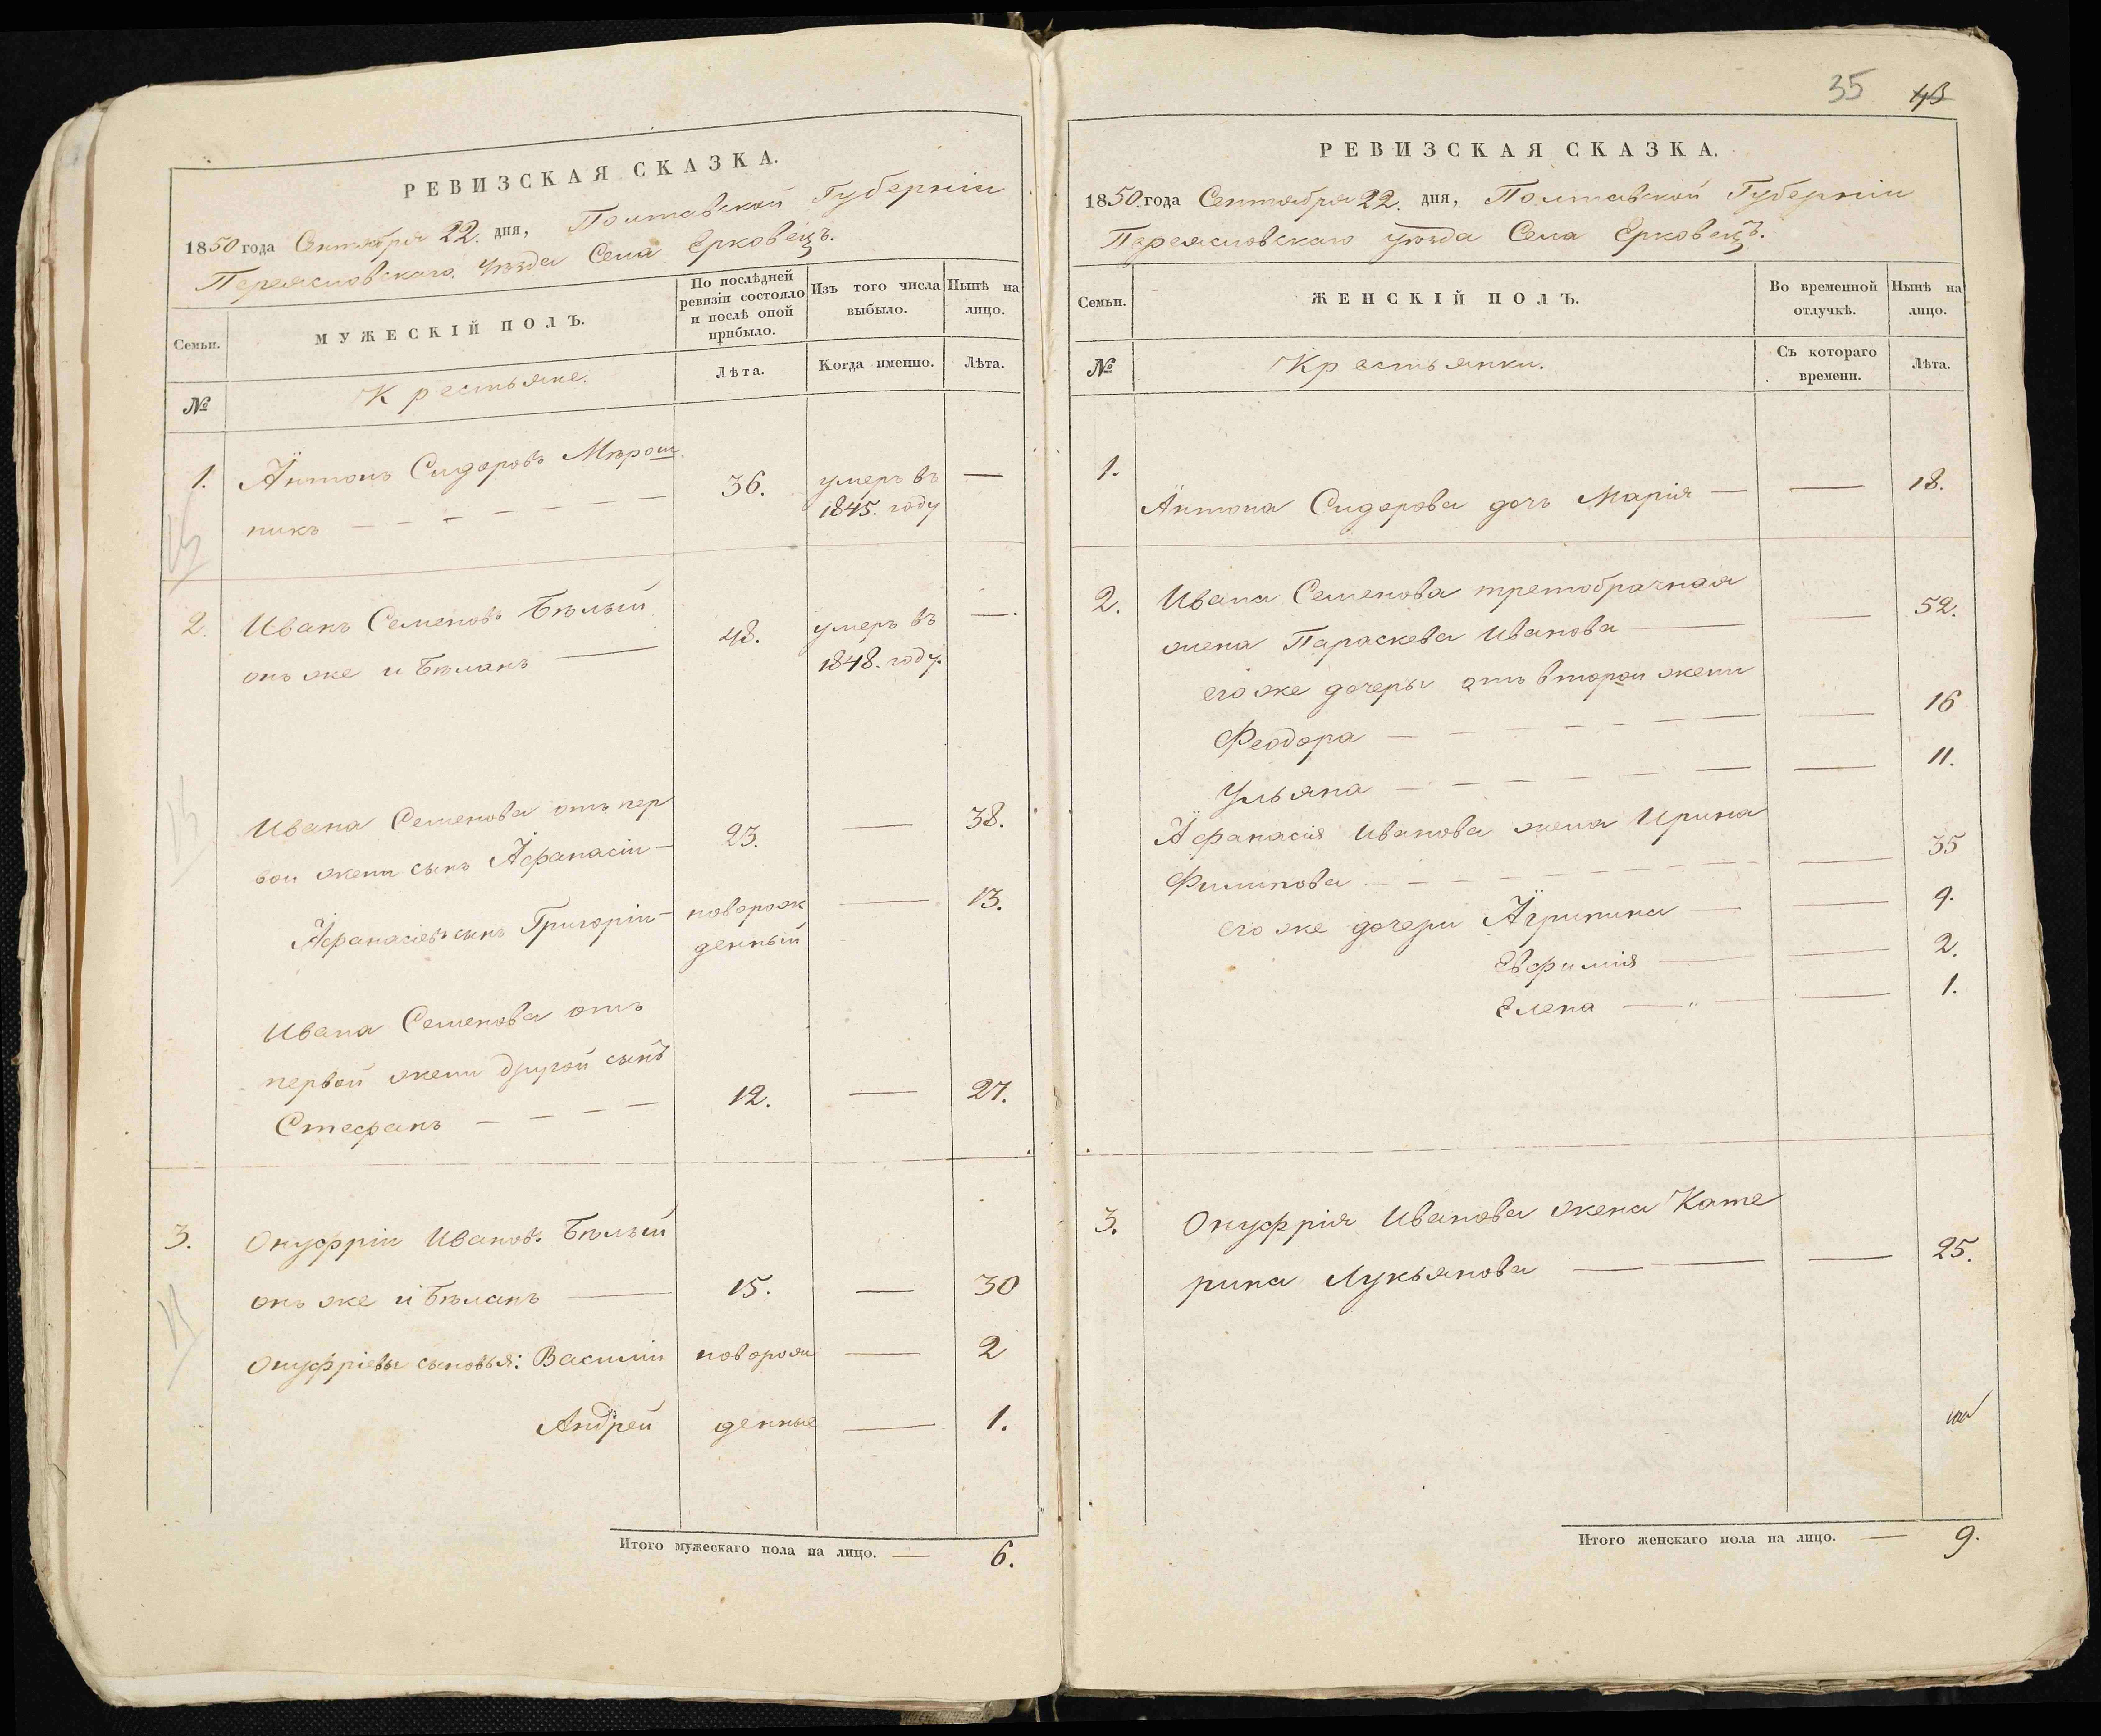 РЕВИЗСКАЯ СКАЗКА.
1850 года Сентября 22. дня, Полтавской Губерніи
Переясловскаго уѣзда Села Ерковецъ.
Семьи.
МУЖЕСКІЙ ПОЛЪ.
По послѣдней
ревизіи состояло
и послѣ оной
прибыло.
Изъ того числа
выбыло.
Нынѣ на
лицо.
№
Крестьяне.
Лѣта.
Когда именно.
Лѣта.
1. Антонъ Сидоровъ Мѣрош
никъ 36. умеръ въ —
1845. году
2. Иванъ Семеновъ Бѣлый
онъ же и Бѣланъ — 48. умеръ въ —.
1848. году.
Ивана Семенова отъ пер
вои жени сынъ Афанасіи — 23. — 38.
Афанасіевъ сынъ Григоріи — новорож — 13.
денный
Ивана Семенова отъ
первой жени другой сынъ
Стефанъ — — — 12. — 27.
3. Онуфріи Иванов. Бѣлый
онъ же и Бѣланъ — 15. — 30
Онуфріевы сыновья: Василіи новорож — 2
Андрей денные — 1.
Итого мужескаго пола на лицо. — 6.
35 43
РЕВИЗСКАЯ СКАЗКА.
1850 года Сентября 22. дня, Полтавской Губерніи
Переясловскаго уѣзда Села Ерковецъ.
Семьи.
ЖЕНСКІЙ ПОЛЪ.
Во временной
отлучкѣ.
Нынѣ на
лицо.
№
Крестьянки.
Съ котораго
времени.
Лѣта.
1.
Антона Сидорова дочь Марія — — 18.
2. Ивана Семенова третобрачная
жена Параскева Иванова — — 52.
его же дочеры отъ второи жени
Феодора — — 16
Ульяна — — 11.
Афанасія Иванова жена Ирина
Филипова — — 35
его же дочери Агрипина — — 9.
Евфимія — — 2.
Елена — — 1.
3. Онуфрія Иванова жена Кате
рина Лукьянова — — 25.
Итого женскаго пола на лицо. — 9.